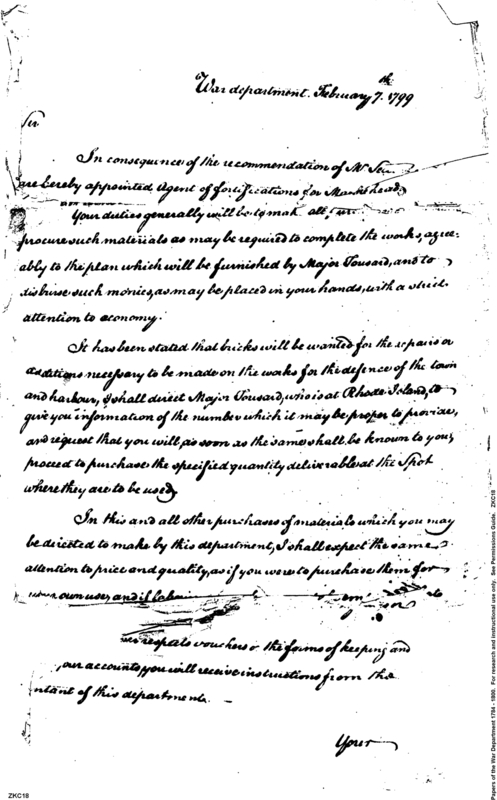 War department. February 7.th 1799
Sir
In consequence of the recommendation of Mr. Se
are hereby appointed Agent of fortifications for Marblehead,
Your duties generally will be to mak all,
procure such materials as may be required to complete the works, agree-
ably to the plan which will be furnished by Major Tousard, and to
disburse such monies, as may be placed in your hands, with a strict
attention to economy.
It has been stated that bricks will be wanted for the repairs or
additions necessary to be made on the works for the defence of the town
and harbour, I shall direct Major Tousard, who is at Rhode Island, to
give you information of the number which it may be proper to provide,
and request that you will, as soon as the same shall be known to you,
proceed to purchase the specified quantity deliverable at the Spot
where they are to be used,
In this and all other purchases of materials which you may
be directed to make by this department, I shall expect the same
attention to price and quality, as if you were to purchase them for
own use, and if
respects vouchers or the forms of keeping and
our accounts, you will receive instructions from the
ntant of this department.
Your
Papers of the War Department 1784 - 1800. For research and instructional use only. See Permissions Guide. ZKC18
ZKC18